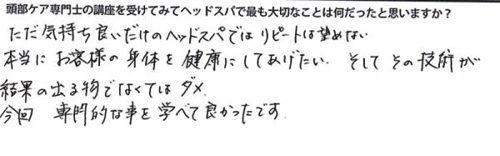 頭部ケア専門士の講座を受けてみてヘッドスパで最も大切なことは何だったと思いますか？
ただ気持ち良いだけのヘッドスパではリピートは望めない
本当にお客様の身体を健康にしてあげたい。そしてその技術が
結果の出る物でなくてはダメ。
今回 専門的な事を学べて良かったです。